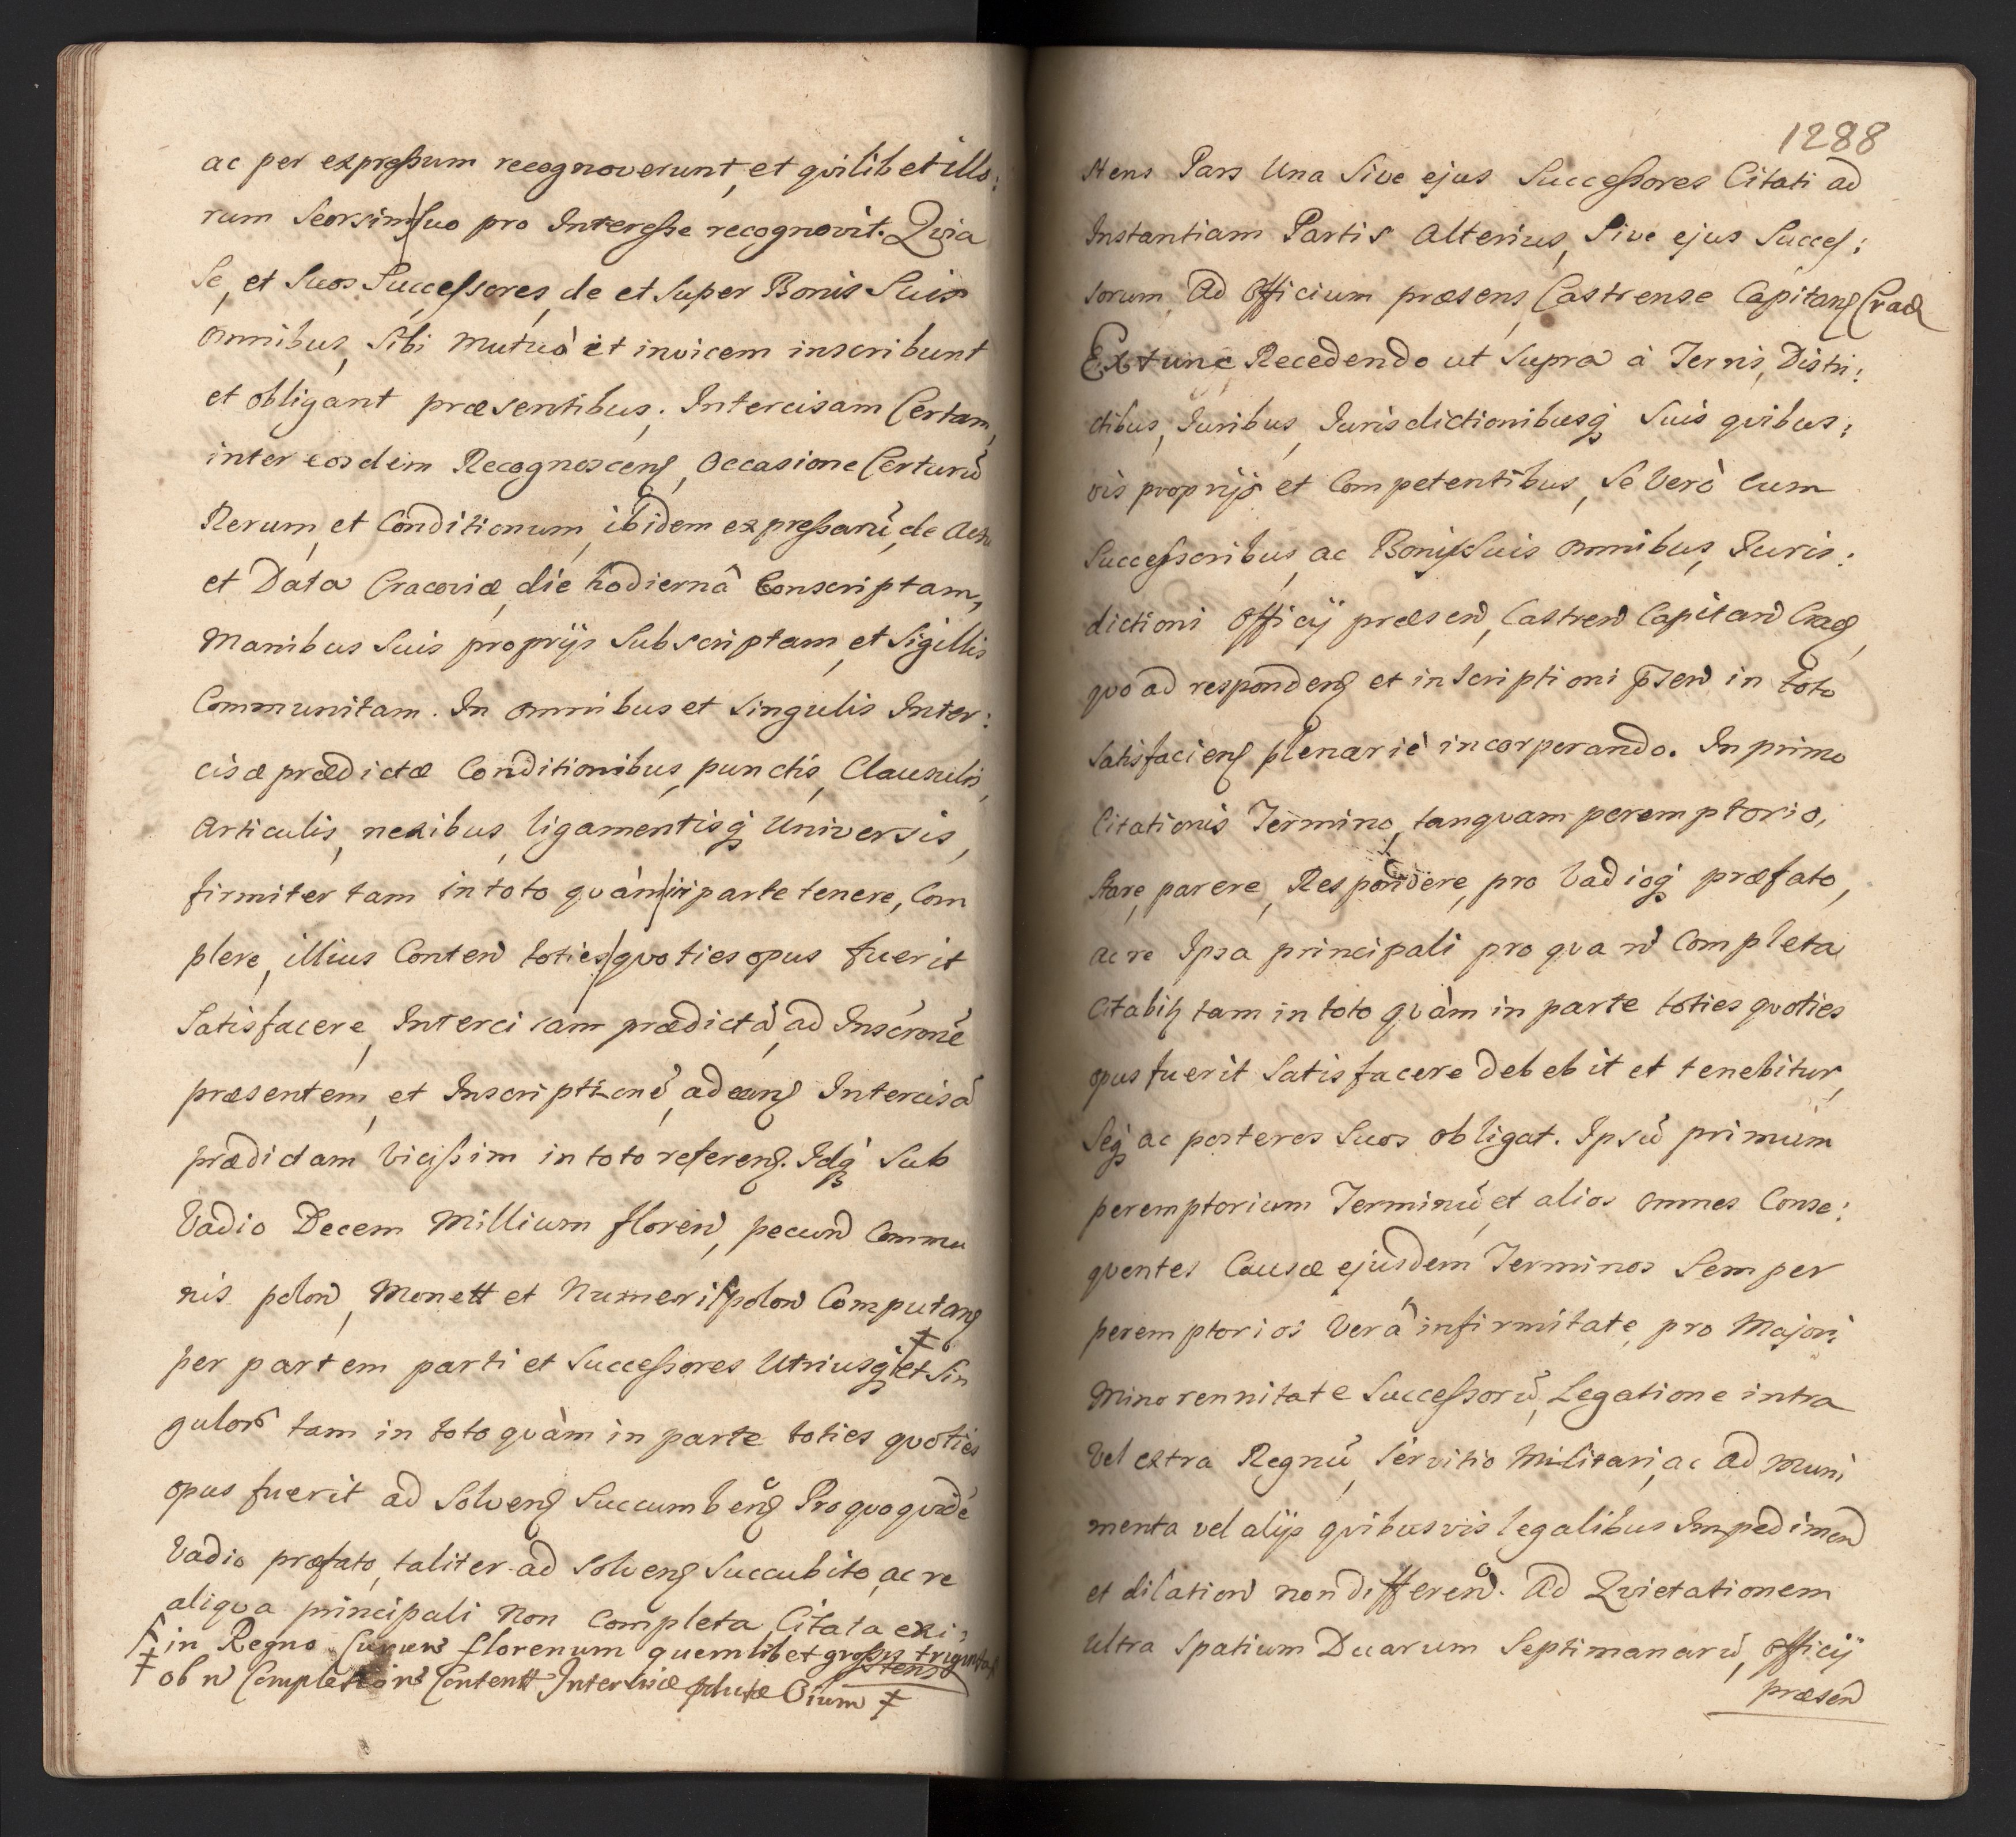 ac per expressum recognoverunt, et qvilibet illo:
rum Seorsim Suo pro Interesse recognovit. Qvia
Se, et Suos Successores, de et Super Bonis Suis
omnibus, Sibi mutuò et invicem inscribunt
et obligant præsentibus. Intercisam Certam,
inter eosdem Recognoscen, Occasione Certarũ
Rerum, et Conditionum, ibidem expressarũ, de Actu
et Data Cracoviæ, die hodiernâ Conscriptam,
Manibus Suis proprijs Subscriptam, et Sigillis
Communitam. In omnibus et Singulis Inter:
cisæ prædictæ Conditionibus, punctis, Clausulis,
Articulis, nexibus, ligamentisq Universis,
firmiter tam in toto qvàm in parte tenere, Com
plere, illius Conten toties qvoties opus fuerit
Satisfacere, Intercisam prædictã, ad Inscrõnẽ
præsentem, et Inscriptionẽ, ad eand Intercisã
prædictam vicissim in toto referend. Idq Sub
Vadio Decem Millium floren, pecun Commu
nis polon, Monett et Numeri polon Computand
per partem parti et Successores Utriusq ‡ et Sin
gulorũ tam in toto qvàm in parte toties qvoties
opus fuerit ad Solvend Succumbend. Pro qvo qvidẽ
Vadio præfato, taliter ad Solvend Succubito, ac re
aliqva principali non Completa, Citata exi:
stens
in Regno Curren florenum quemlibet grossis triginta
‡ ob n Completion Contentt Intercisæ Oium ‡
1288
stens Pars Una Sive ejus Successores Citati ad
Instantiam Partis Alterius, Sive ejus Succes:
sorum, Ad Officium præsens, Castrense Capitan Crac
Extunc, Recedendo ut Supra à Terris, Distri:
ctibus, Iuribus, Iurisdictionibusq Suis qvibus:
vis proprijs et Competentibus, Se Verò Cum
Successoribus, ac Bonis Suis omnibus, Iuris:
dictioni Officij præsen, Castren Capitan Crac,
qvo ad respondend et inscriptioni pñsen in toto
Satisfaciend plenariè incorporando. In primo
Citationis Termino, tanqvam peremptorio,
Stare, parere, Respondere, pro Vadioq præfato,
ac re Ipsa principali pro qva n Completa
Citabit tam in toto qvàm in parte toties qvoties
opus fuerit Satisfacere debebit et tenebitur,
Seq ac posteros Suos obligat. Ipsũ primum
peremptorium Terminũ, et alios omnes Conse:
qventes Causæ ejusdem Terminos Semper
peremptorios Verâ infirmitate, pro Majori
Minorennitate Successorũ, Legatione intra
Vel extra Regnũ, Servitio Militari, ac ad muni
menta vel alijs qvibusvis legalibus Impedimen
et dilation non differen. Ad Qvietationem
ultra Spatium Duarum Septimanarũ, Officij
præsen